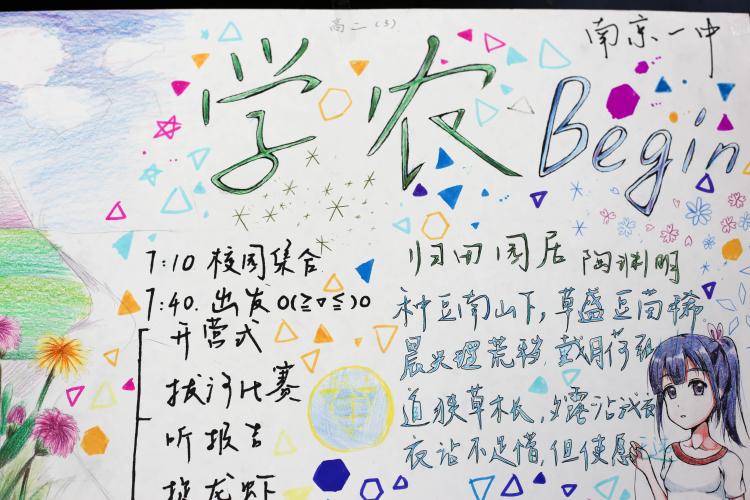 高二(3)
南京一中
学农Begin
7:10 校园集合
7:40. 出发 O(≧▽≦)O
开营式
拔河比赛
听报告
捉龙虾
归田园居 陶渊明
种豆南山下，草盛豆苗稀
晨兴理荒秽，戴月荷
道狭草木长，夕露沾我衣
衣沾不足惜，但使愿